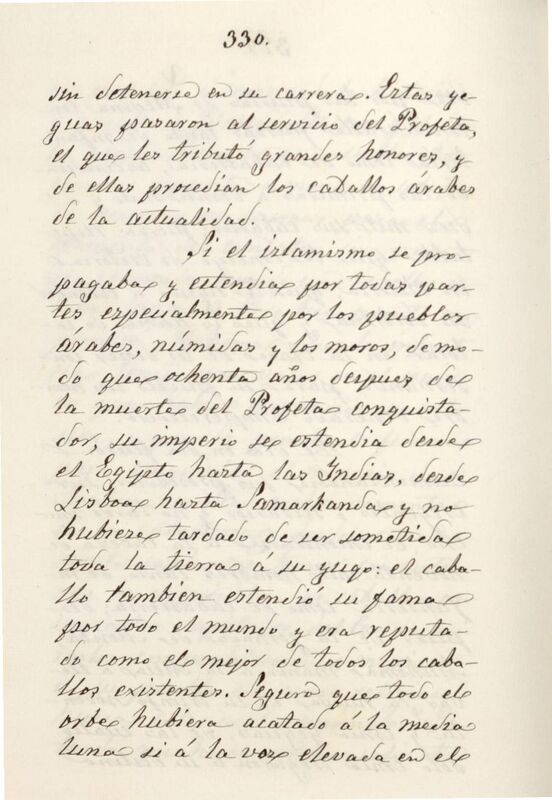 330.
sin detenerse en su carrera. Estas ye-
guas pasaron al servicio del Profeta,
el que les tributó grandes honores, y
de ellas procedian los caballos árabes
de la actualidad.
Si el islamismo se pro-
pagaba y estendia por todas par-
tes especialmente por los pueblos
árabes, númidas y los moros, de mo-
do que ochenta años despues de
la muerte del Profeta conquista-
dor, su imperio se estendia desde
el Egipto hasta las Indias, desde
Lisboa hasta Samarkanda y no
hubiese tardado de ser sometida
toda la tierra á su yugo: el caba-
llo tambien estendió su fama
por todo el mundo y era reputa-
do como el mejor de todos los caba-
llos existentes. Seguro que todo el
orbe hubiera acatado á la media
luna si á la voz elevada en el